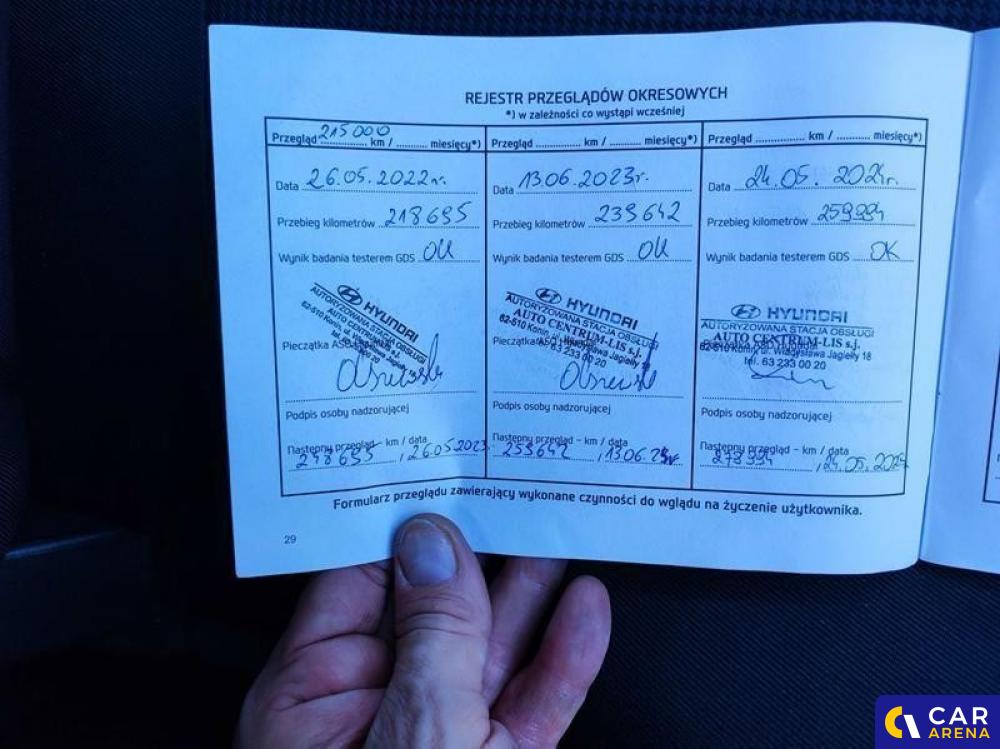 REJESTR PRZEGLĄDÓW OKRESOWYCH
*) w zależności co wystąpi wcześniej
Przegląd 215000 km / .......... miesięcy*)
Data 26.05.2022r.
Przebieg kilometrów 218695
Wynik badania testerem GDS OK
HYUNDAI
AUTORYZOWANA STACJA OBSŁUGI
AUTO CENTRUM-LIS s.j.
62-510 Konin, ul. Władysława Jagiełły 18
tel. 63 233 00 20
Pieczątka ASO
Podpis osoby nadzorującej
Następny przegląd – km / data
248695, 26.05.2023
Przegląd .................. km / .......... miesięcy*)
Data 13.06.2023r.
Przebieg kilometrów 239642
Wynik badania testerem GDS OK
HYUNDAI
AUTORYZOWANA STACJA OBSŁUGI
AUTO CENTRUM-LIS s.j.
62-510 Konin, ul. Władysława Jagiełły 18
tel. 63 233 00 20
Pieczątka ASO Hyundai
Podpis osoby nadzorującej
Następny przegląd – km / data
259642, 13.06.24r
Przegląd .................. km / .......... miesięcy*)
Data 24.05.2024r.
Przebieg kilometrów 259994
Wynik badania testerem GDS OK
HYUNDAI
AUTORYZOWANA STACJA OBSŁUGI
AUTO CENTRUM-LIS s.j.
62-510 Konin, ul. Władysława Jagiełły 18
tel. 63 233 00 20
Podpis osoby nadzorującej
Następny przegląd – km / data
24.05.2025
Formularz przeglądu zawierający wykonane czynności do wglądu na życzenie użytkownika.
29
CAR
ARENA